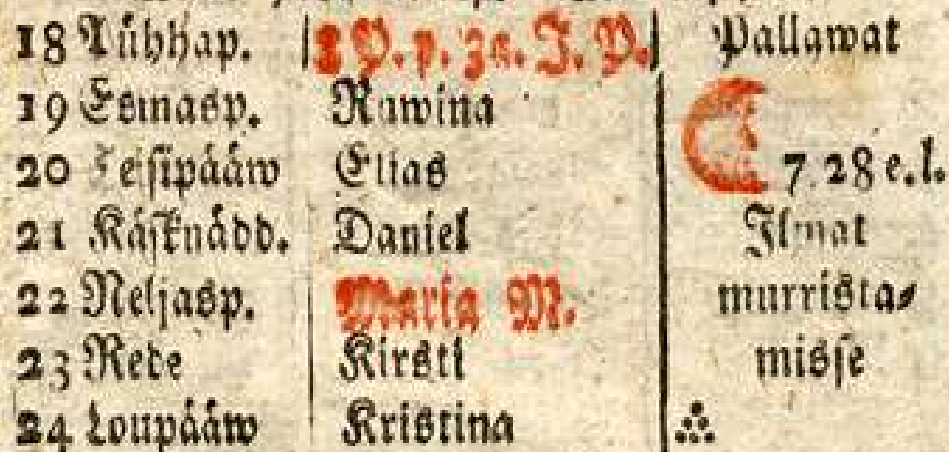 18 Pühhap. 8 P. p. 3a. J. P. Pallawat
19 Esmasp. Rawina
20 Teisipääw Elias 7 28 e. l.
21 Käsknädd. Daniel Ilmat
22 Neljasp. Maria M. murrista⸗
23 Rede Kirsti misse
24 Loupääw Kristina